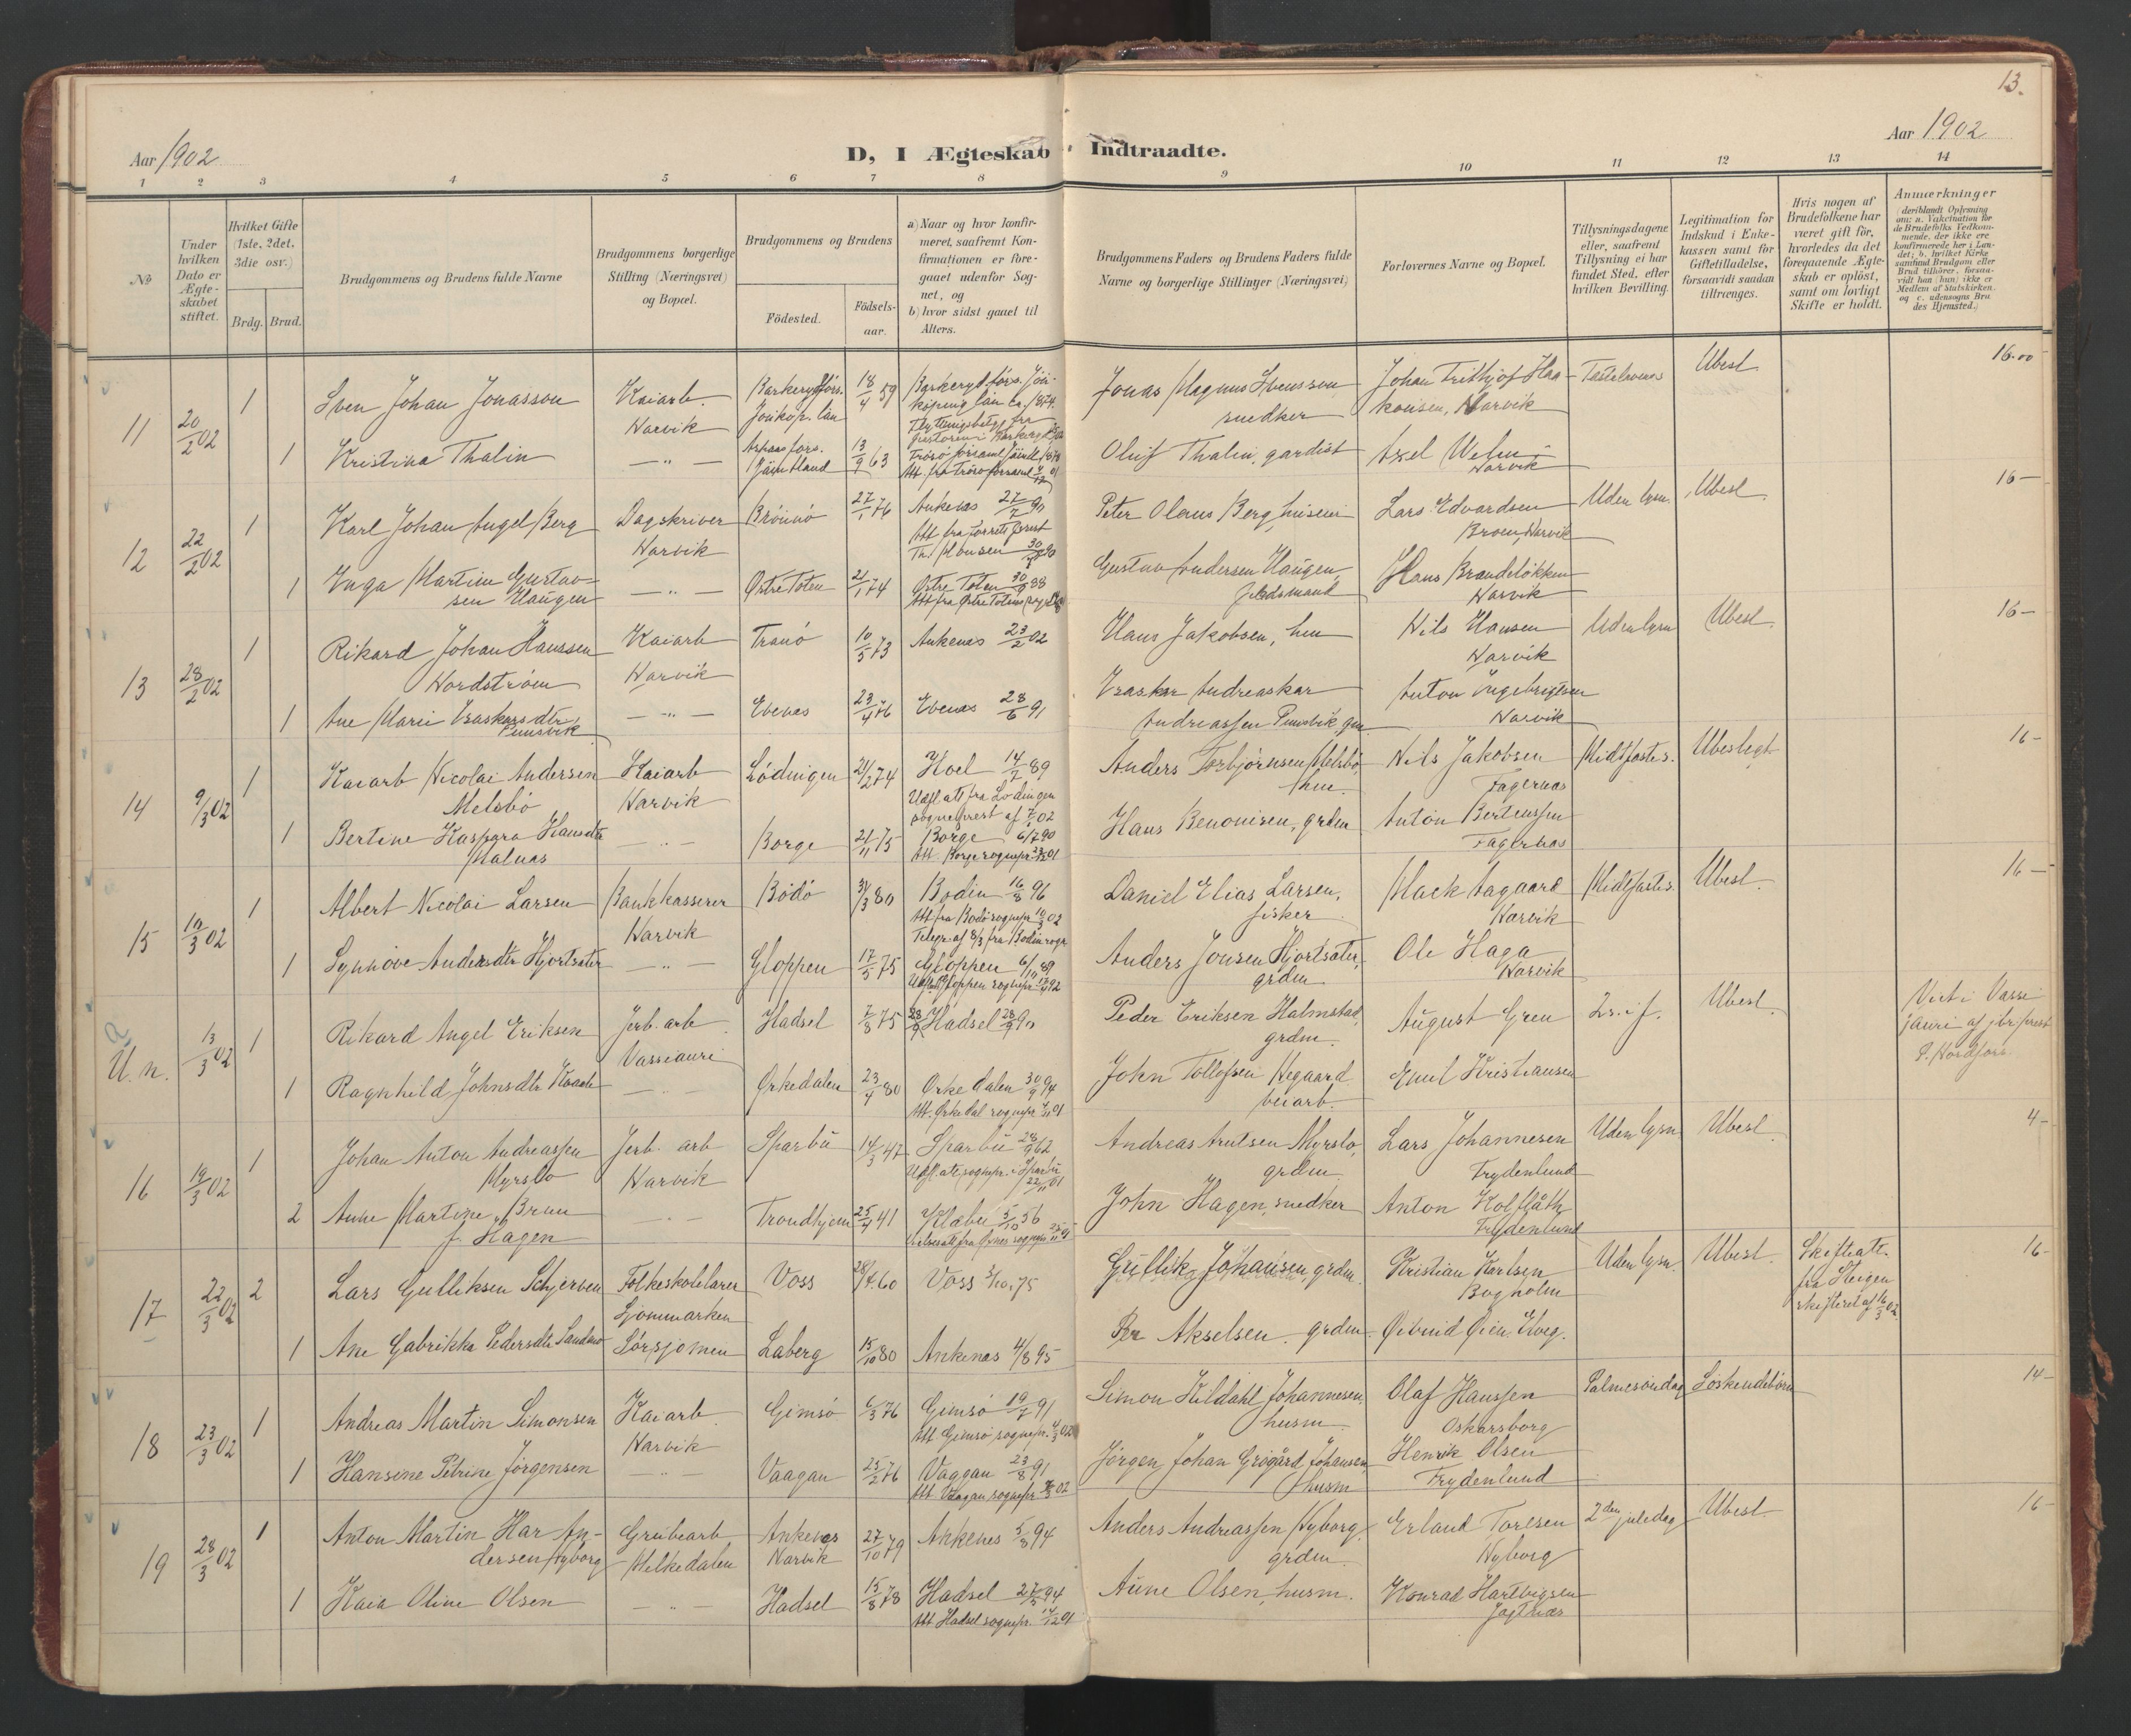 13.
Aar 1902
D, I Ægteskab Indtraadte.
Aar 1902
1 2 3 4 5 6 7 8 9 10 11 12 13 14
No
Under hvilken Dato er Ægteskabet stiftet.
Hvilket Gifte (1ste, 2det, 3die osv.)
Brdg. Brud.
Brudgommens og Brudens fulde Navne
Brudgommens borgerlige Stilling (Næringsvei) og Bopæl.
Brudgommens og Brudens
Födested.
Födsels-aar.
a) Naar og hvor konfirmeret, saafremt Konfirmationen er foregaaet udenfor Sognet, og
b) hvor sidst gaaet til Alters.
Brudgommens Faders og Brudens Faders fulde Navne og borgerlige Stillinger (Næringsvei)
Forlovernes Navne og Bopæl.
Tillysningsdagene eller, saafremt Tillysning ei har fundet Sted, efter hvilken Bevilling.
Legitimation for Indskud i Enkekassen samt for Giftetilladelse, forsaavidt saadan tiltrænges.
Hvis nogen af Brudefolkene har været gift för, hvorledes da det foregaaende Ægteskab er oplöst, samt om lovligt Skifte er holdt.
Anmærkninger
(deriblandt Oplysning om: a. Vakcination for de Brudefolks Vedkommende, der ikke ere konfirmerede her i Landet; b. hvilket Kirkesamfund Brudgom eller Brud tilhörer, forsaavidt han (hun) ikke er Medlem af Statskirken, og c. udensogns Brudes Hjemsted.)
11 20/2 02 1 Sven Johan Jonasson Kaiarb. Narvik Barkeryd förs. Jönkøp. län 18/4 59 Barkeryd förs. Jön-
köping län ca. 1874.
Jonas Magnus Svensson snedker
Johan Frithjof Haa-
konsen, Narvik
Ubesl. 16.00
1 Kristina Thalin — " — Jämtland 13/9 63
Oluf Thalin, gardist Axel Welin Narvik
12 22/2 02 1 Karl Johan Angel Berg Dagskriver Narvik Brönnö 27/1 76 Ankenes 27/7 90
Peter Olaus Berg, Lars Edvardsen Narvik Uden lysn. Ubesl. 16 —
1 Inga Martine Gustav-
sen Haugen — " — Østre Toten 21/1 74 Østre Toten 30/9 88
Gustav Andersen Haugen, Hans Brandeløkken Narvik
13 28/2 02 1 Rikard Johan Hanssen
Nordström Kaiarb Narvik Tranö 10/5 73 Ankenes 23/2 02
Hans Jakobsen, Nils Hansen Narvik Uden lysn Ubesl. 16 —
1 Ane Marie — " — Evenes 23/4 76 Evenes 28/6 91
Andreassen Anton Ingebrigtsen Narvik
14 9/3 02 1 Kaiarb Nicolai Andersen
Melsbö Kaiarb Narvik Lödingen 21/2 74 Hoel 14/7 89
Udfl. att fra Lödingen
sogneprest af
Anders Torbjörnsen Melsbö, Nils Jakobsen Fagernæs Midtfastes. Ubeslegt. 16 —
1 Bertine Kaspara Hansdtr — " — Borge 21/11 75 Borge 6/7 90
Att. Borge sognepr. 23/12 01
Hans Benonisen, grdm Anton Bertenssen Fagernæs
15 10/3 02 1 Albert Nicolai Larsen Bankkasserer Narvik Bödö 31/3 80 Bodin 16/8 96
Att fra Bodö sognepr. 10/3 02
Telegr. af 8/3 fra Bodin sogn
Daniel Elias Larsen, fisker Mack Aagaard Narvik Midtfastes. Ubesl. 16 —
1 Synnöve Andersdtr Hjortsæter — " — Gloppen 17/5 75 Gloppen 6/10 89
Anders Jonsen Hjortsæter, grdm Ole Haga Narvik
U. n. 13/3 02 1 Rikard Angel Eriksen Jerb. arb. Vassiauri Hadsel 7/8 75 Hadsel 28/9 90
Peder Eriksen Halmstad, grdm. August Gren Ubesl. Viet i Vassi-
jauri af jbr. prest
P. Nordfors.
1 Ragnhild Johnsdtr — " — Orkedalen 23/4 80 Orkedalen 30/9 94
Att. Orkedal sognepr.
John Tollefsen Emil Kristiansen
16 19/3 02 1 Johan Anton Andreassen
Myrslo Jerb. arb Narvik Sparbu 14/3 47 Sparbu 28/9 62
Andreas Arntsen Myrslo, grdm. Lars Johannesen Frydenlund Uden lysn Ubesl. 4 —
2 Anne Martine Bruun
f. Hagen — " — Trondhjem 25/4 41 Klæbu 5/10 56
John Hagen, snedker Anton Kolflåth Frydenlund
17 22/3 02 2 Lars Gulliksen Schjerven Folkeskolelærer Voss 28/4 60 Voss 3/10 75
Gullik Johansen, grdm. Kristian Karlsen Bogholm Uden lysn. Ubesl. Skifteatt.
fra Steigen
skifteret af 16/3 02 16 —
1 Ane Gabrikke Pedersdtr Sandmo Sørsjomen Laberg 15/10 80 Ankenes 4/8 95
Per Akselsen, grdm.
18 23/3 02 1 Andreas Martin Simonsen Kaiarb. Narvik Gimsö 6/3 76 Gimsö 19/7 91
Att Gimsö sognepr. 4/3 02
Simon Kildahl Johannesen, husm Olaf Hanssen Oskarsborg Palmesöndag Söskendebörn 14 —
1 Hansine Petrine Jørgensen — " — Vaagan 25/2 76 Vaagan 23/8 91
Att. Vaagan sognepr.
Jørgen Johan Grøgård Johansen, husm Henrik Olsen Frydenlund
19 28/3 02 1 Anton Martin Har An-
dersen Nyborg Grubearb Melkedalen Ankenes Narvik 27/10 79 Ankenes 5/8 94
Anders Andreassen Nyborg grdm. Erland Toresen Nyborg 2den juledag Ubesl. 16 —
1 Kaia Oline Olsen — " — Hadsel 15/8 78 Hadsel 27/5 94
Att Hadsel sognepr. 14/12 01
Aune Olsen, husm. Konrad Hartvigsen Jagtnæs